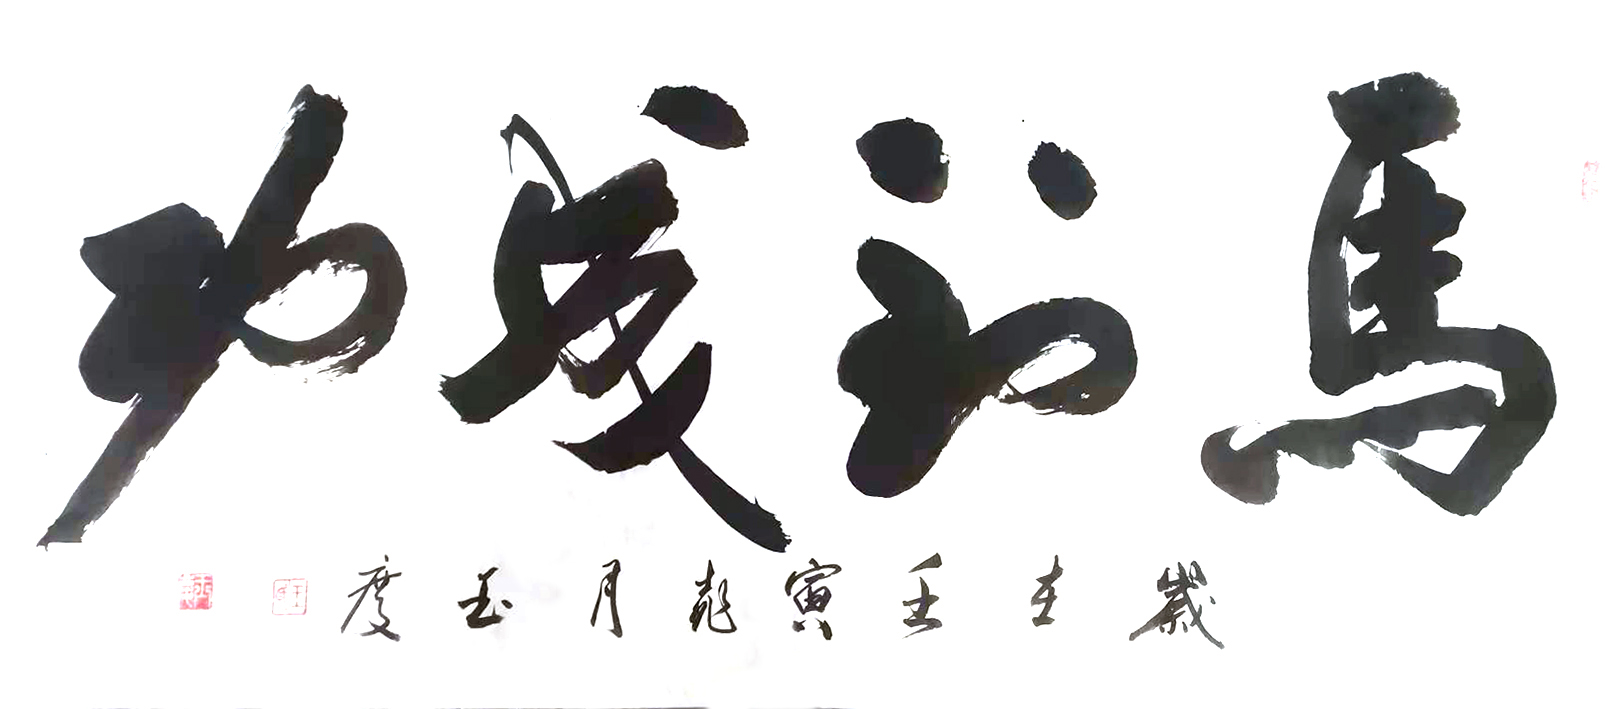 馬到成功
歲在壬寅月玉度